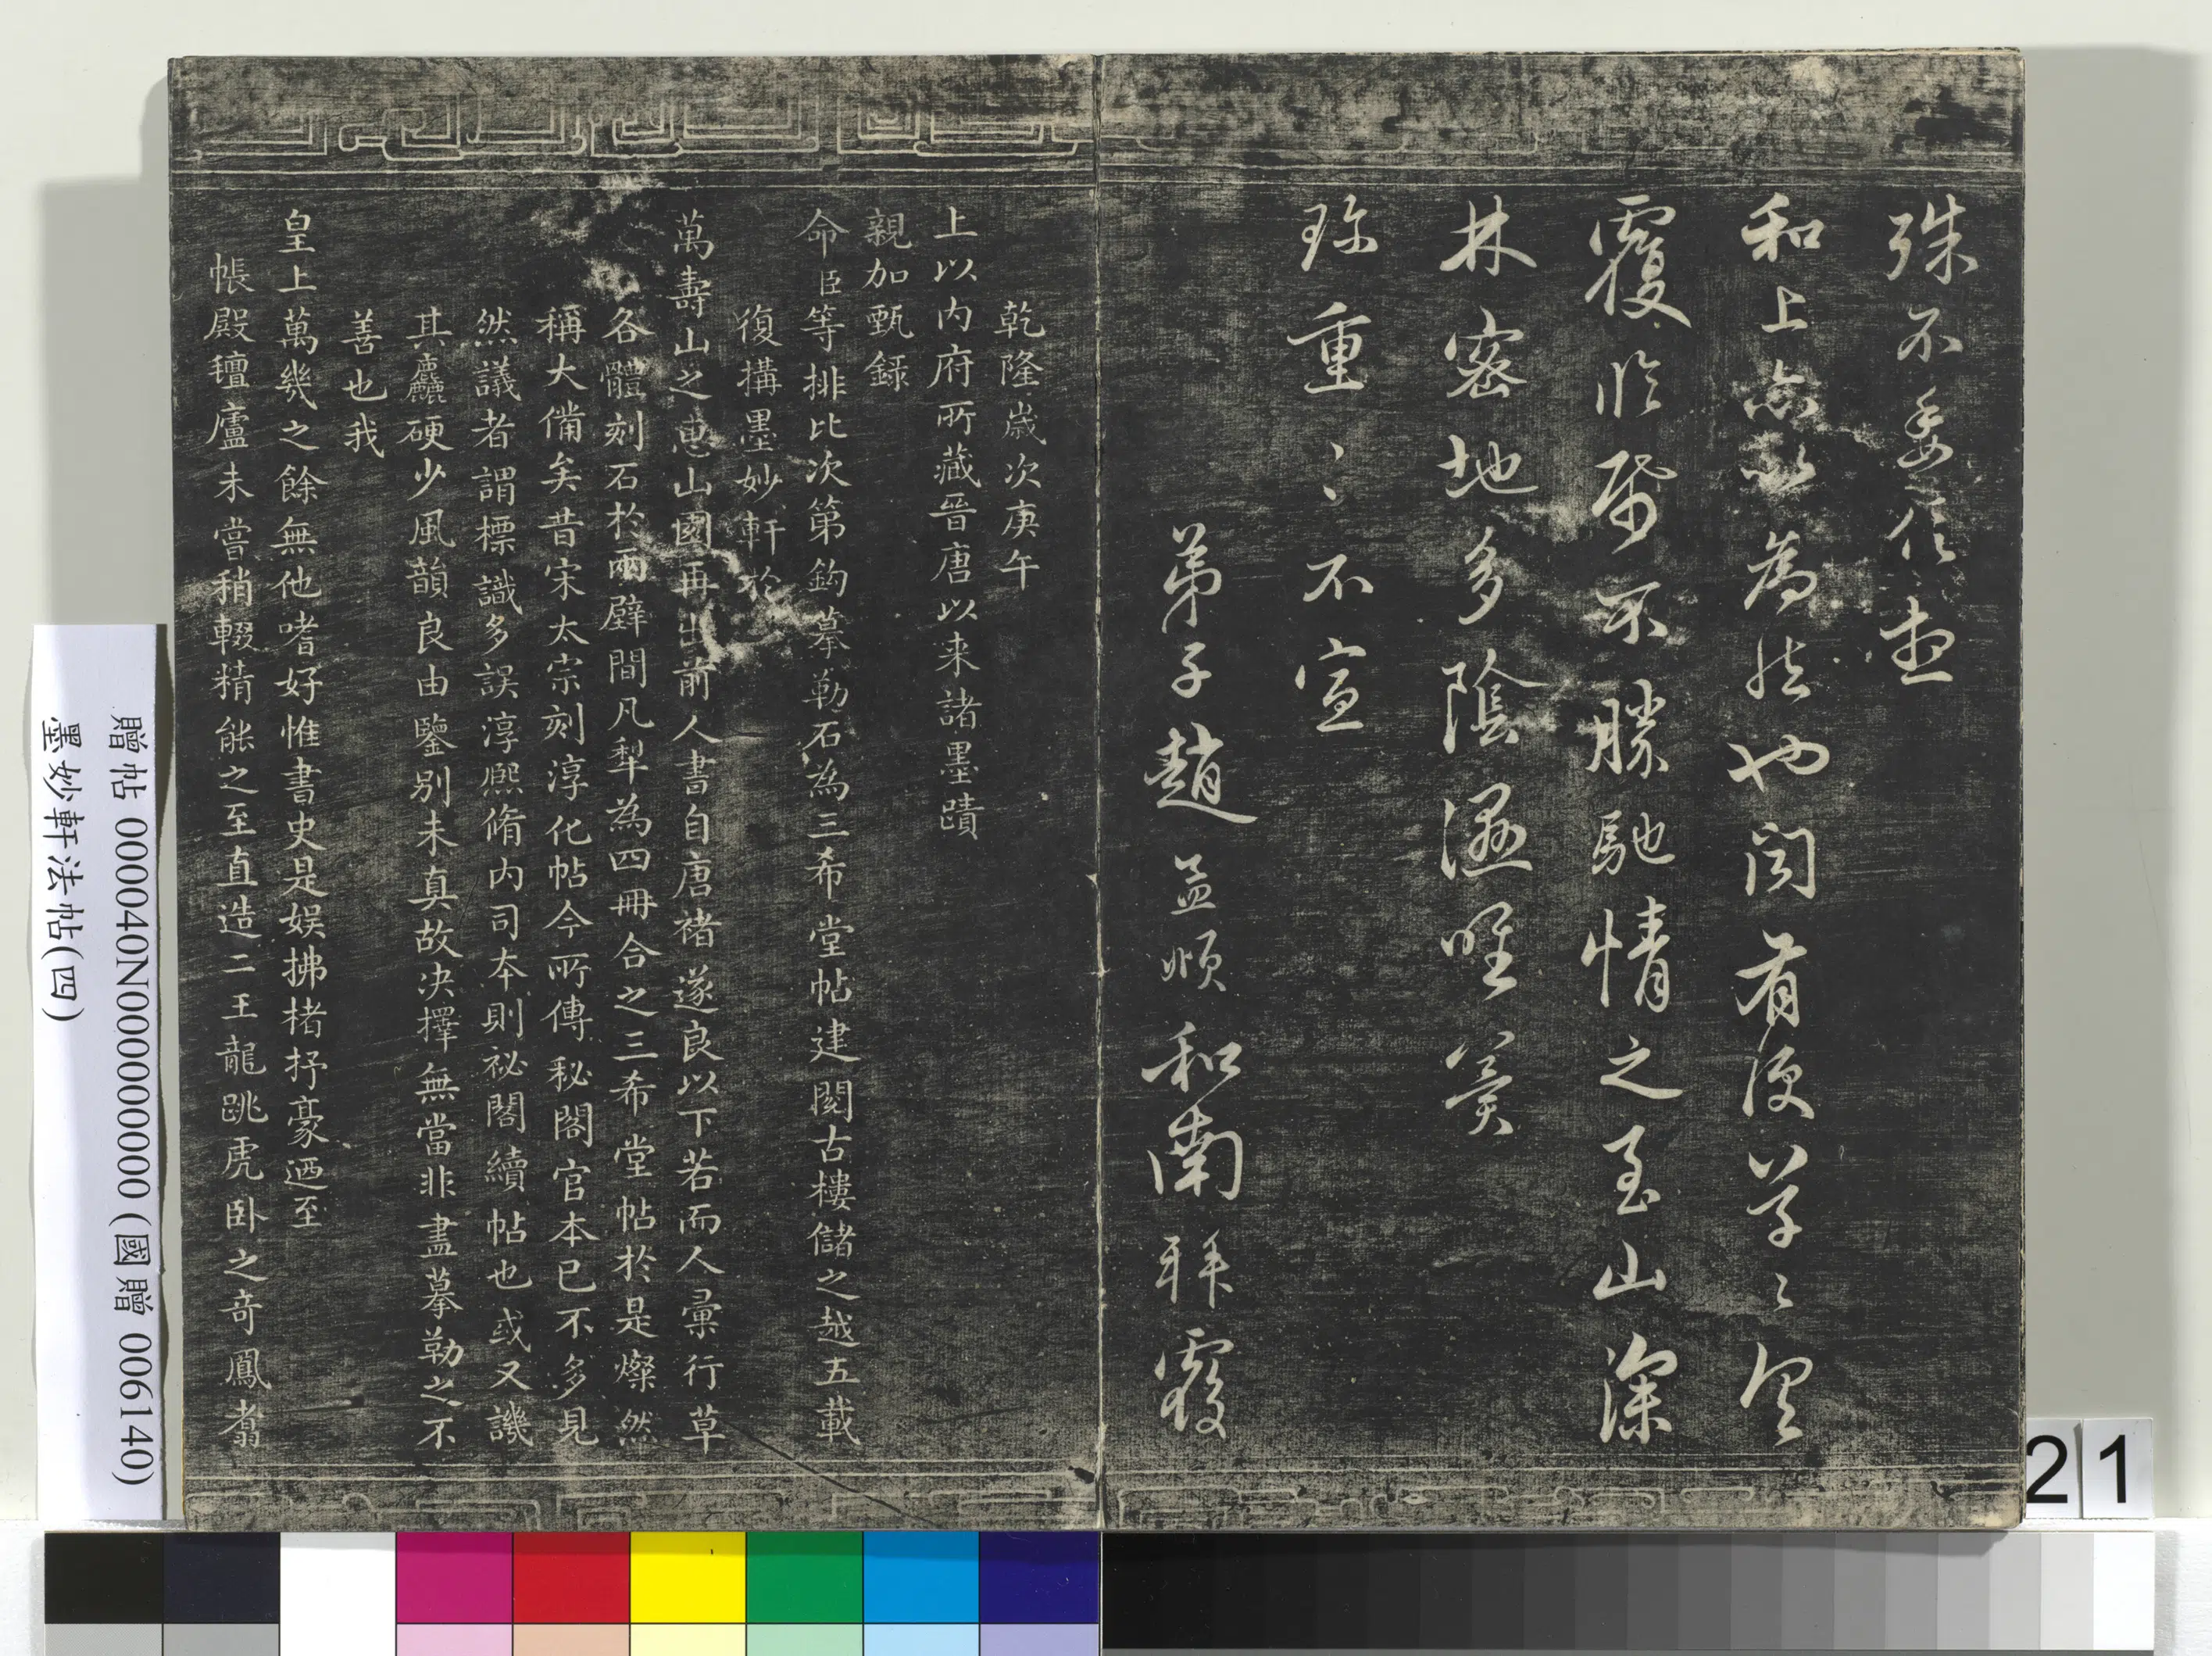 殊不委信
和上亦以為然也聞有便草々具
覆臨紙不勝馳情之至山深
林密地多陰濕唯冀
珎重〻不宣
弟子趙孟頫和南拜覆
乾隆歲次庚午
上以內府所藏晉唐以来諸墨蹟
親加甄錄
命臣等排比次第鈎摹勒石為三希堂帖建閱古樓儲之越五載
復搆墨妙軒於
萬壽山之惠山園再出前人書自唐褚遂良以下若而人彙行草
各體刻石於兩壁間凡犁為四冊合之三希堂帖於是燦然
稱大備矣昔宋太宗刻淳化帖今所傳秘閣官本已不多見
然議者謂標識多誤淳熙脩內司本則祕閣續帖也或又譏
其麤硬少風韻良由鑒別未真故決擇無當非盡摹勒之不
善也我
皇上萬幾之餘無他嗜好惟書史是娛拂楮抒豪迺至
帳殿氊廬未嘗稍輟精能之至直造二王龍跳虎臥之奇鳳翥
贈帖 000040N000000000 (國贈 006140)
墨妙軒法帖(四)
21